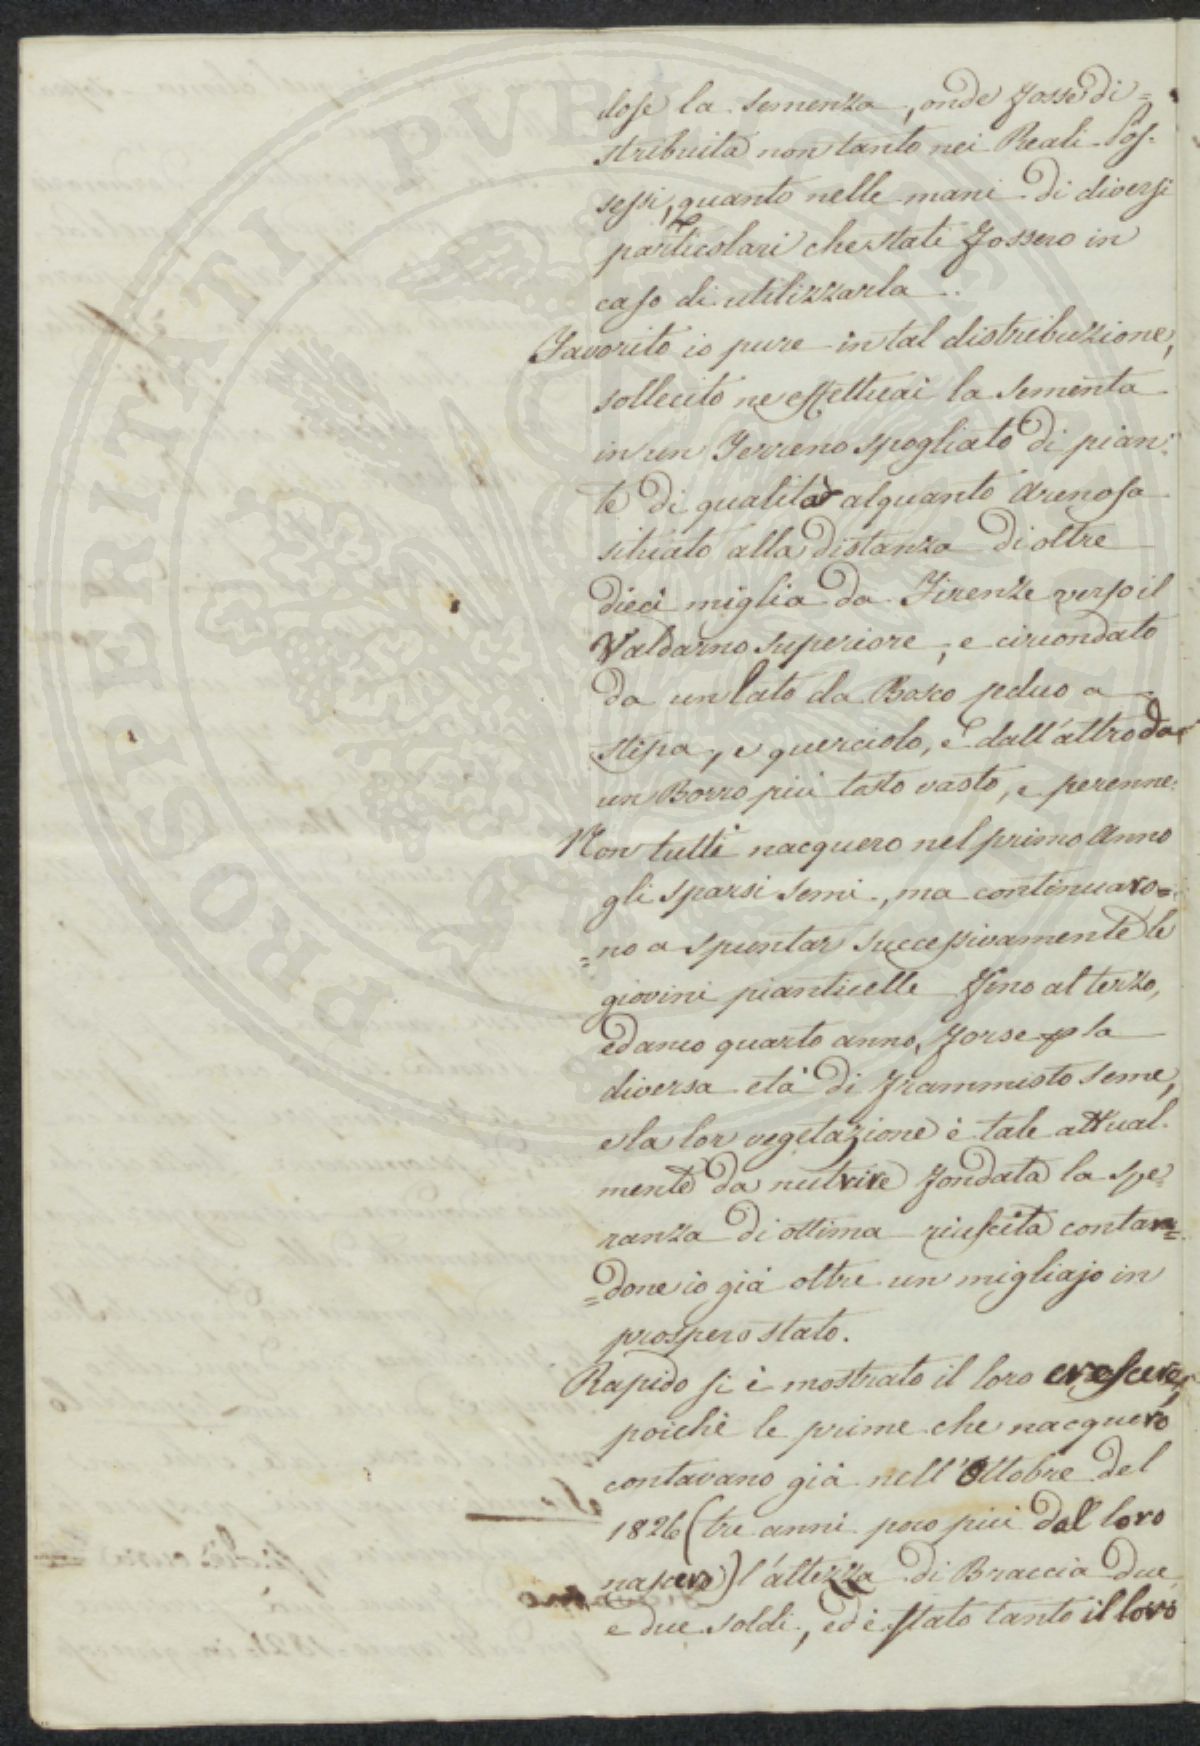 dose la semenza, onde fosse di=
stribuita non tanto nei Reali Pos-
sessi, quanto nelle mani di diversi
particolari che stati fossero in
caso di utilizzarla.
Favorito io pure in tal distribuzione,
sollecito ne effettuai la sementa
in un Terreno spogliato di pian:
te di qualità alquanto arenosa
situato alla distanza di oltre
dieci miglia da Firenze verso il
Valdarno superiore, e circondato
da un lato da Bosco ceduo a
stipa, e querciolo, e dall'altro da
un Borro più tosto vasto, e perenne.
Non tutti nacquero nel primo Anno
gli sparsi semi, ma continuaro=
=no a spuntar successivamente le
giovini pianticelle fino al terzo,
ed anco quarto anno, forse p la
diversa età di frammisto seme,
e la lor vegetazione è tale attual-
mente da nutrire fondata la spe=
ranza di ottima riuscita contan=
=done io già oltre un migliajo in
prospero stato.
Rapido si è mostrato il loro crescere,
poichè le prime che nacquero
contavano già nell'Ottobre del
1826 (tre anni poco più dal loro
nascere) l'altezza di Braccia due
e due soldi, ed è stato tanto il loro
PROSPERITATI PUBLICAE